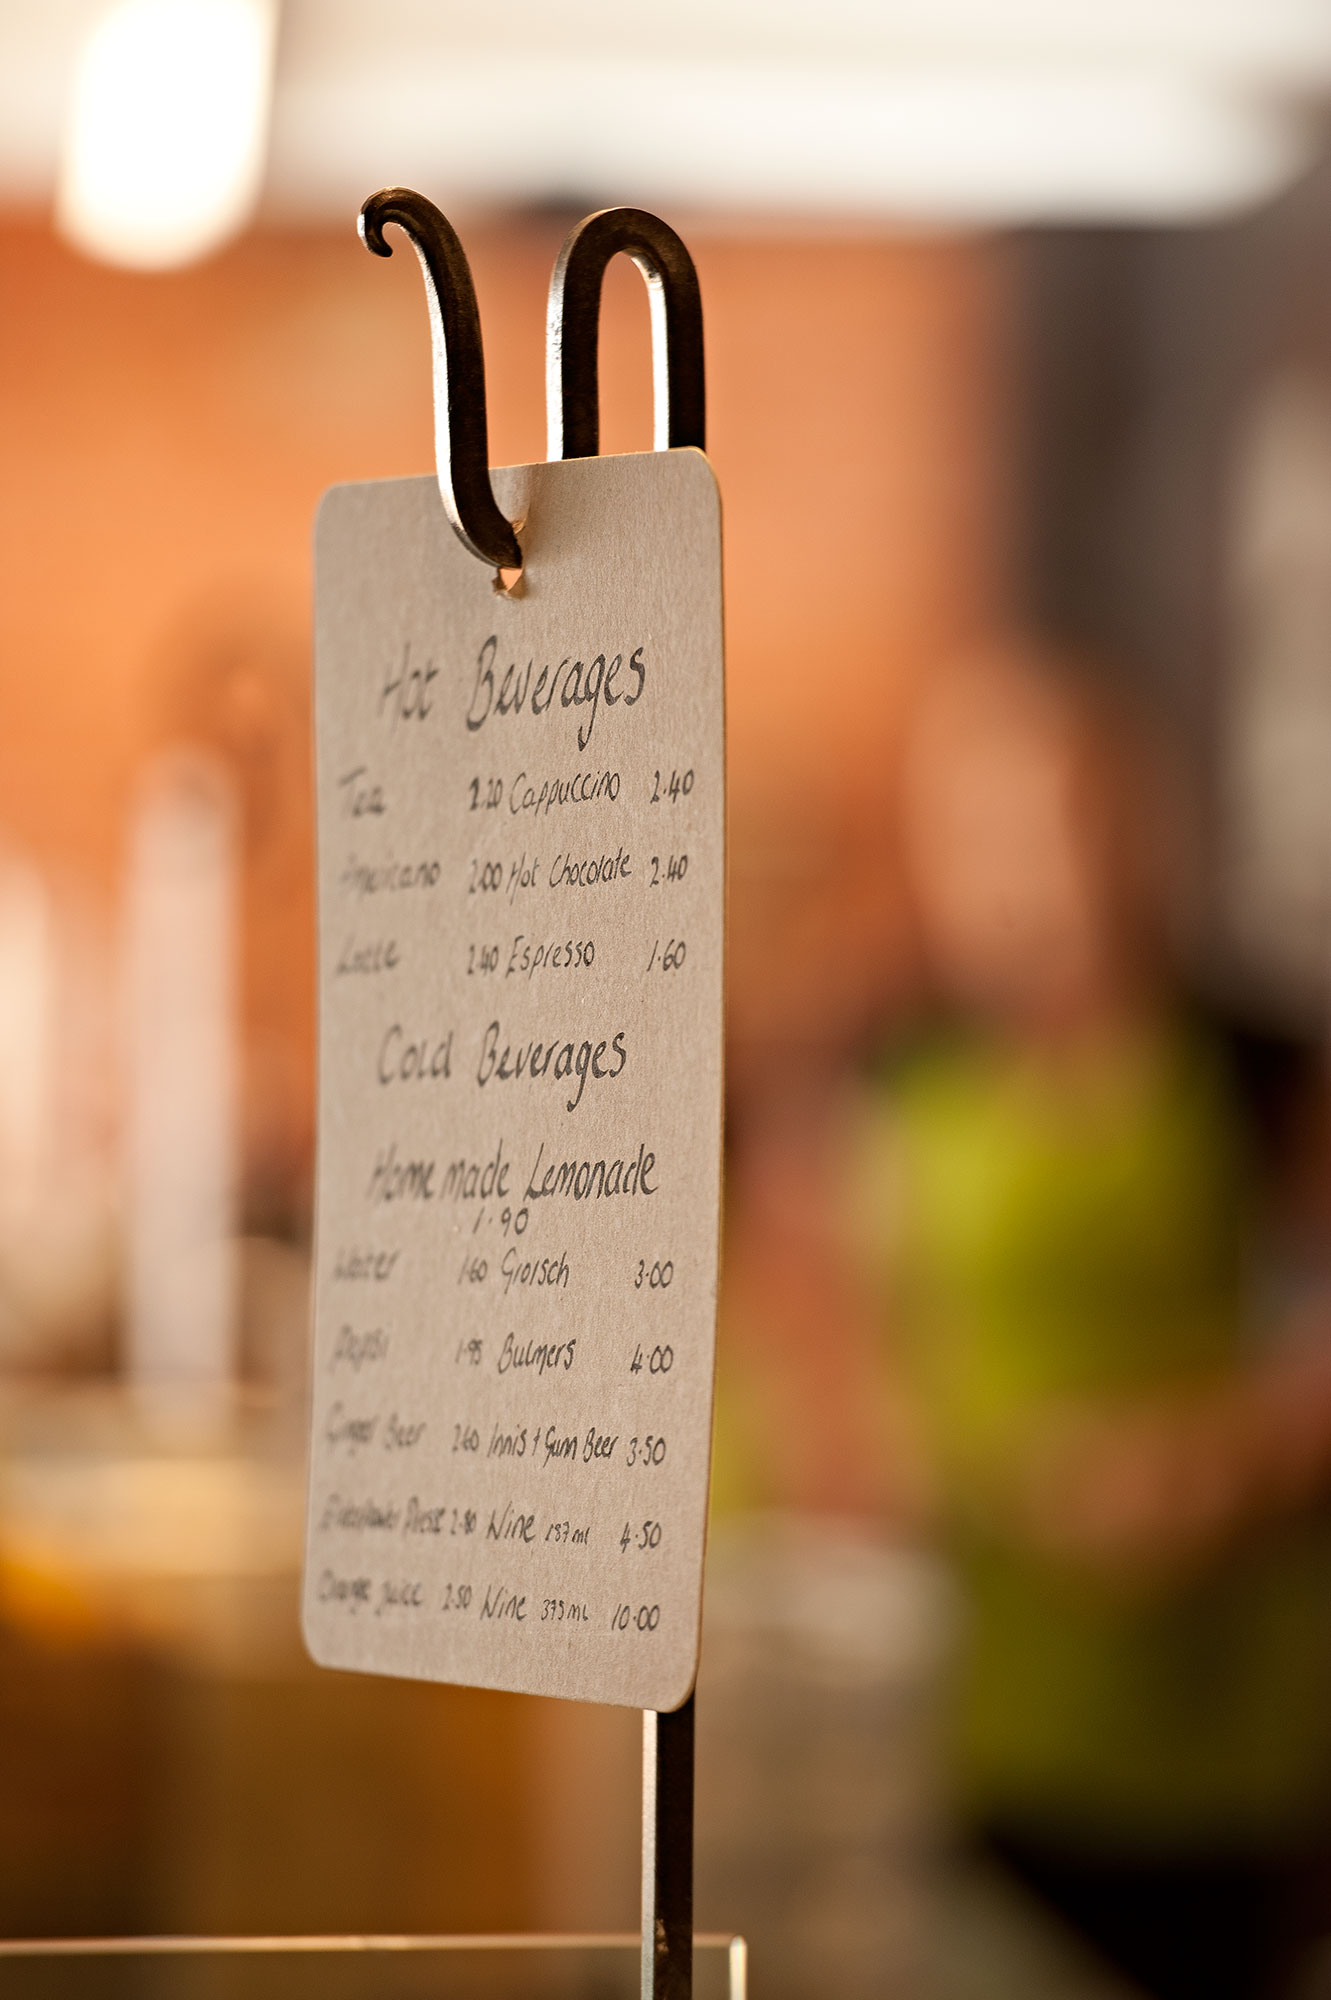 Hot Beverages
Tea 2.20 Cappuccino 2.40
Americano 2.00 Hot Chocolate 2.40
Latte 2.40 Espresso 1.60
Cold Beverages
Home made Lemonade
1.90
Water 1.60 Grolsch 3.00
Pepsi 1.95 Bulmers 4.00
Ginger Beer 2.60 Innis + Gunn Beer 3.50
Elderflower Presse 2.80 Wine 187ml 4.50
Orange Juice 2.50 Wine 375ml 10.00